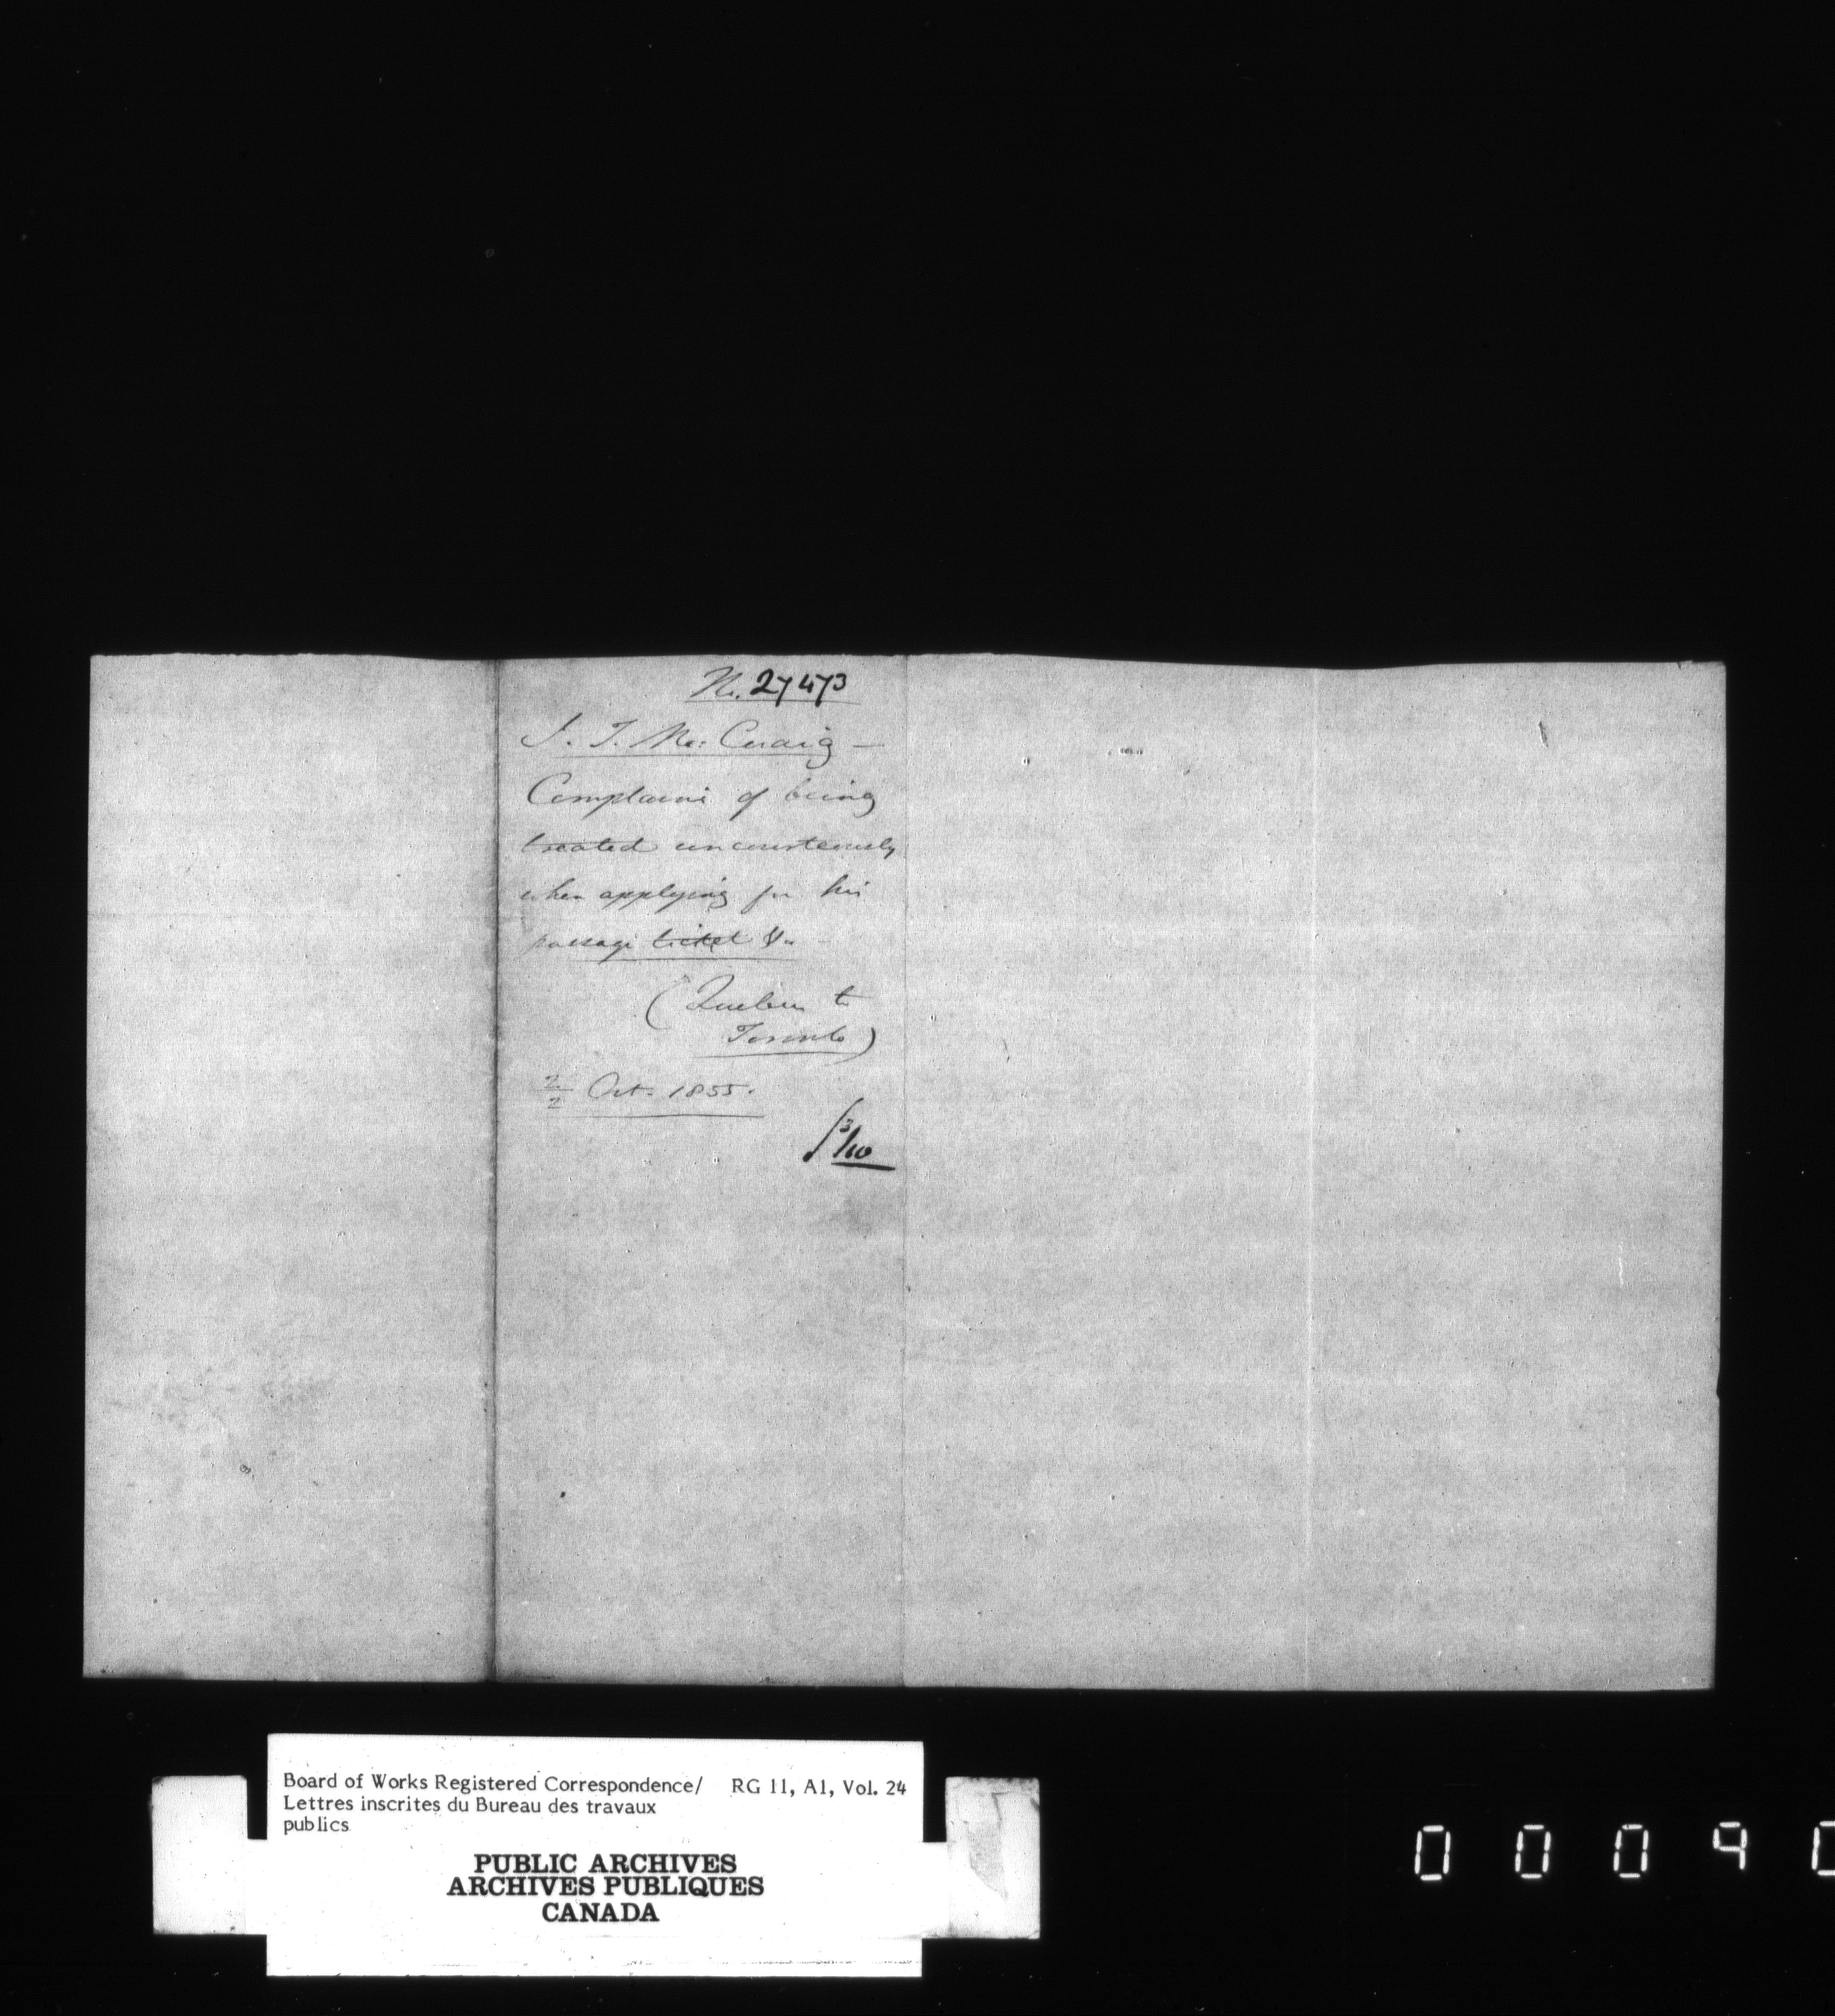 No. 27473
J. T. Mc: Cuaig —
Complains of being
treated uncourteously
when applying for his
passage ticket &c
(Quebec to
Toronto)
2/2 Oct. 1855.
3/10
Board of Works Registered Correspondence/ RG 11, A1, Vol. 24
Lettres inscrites du Bureau des travaux
publics
PUBLIC ARCHIVES
ARCHIVES PUBLIQUES
CANADA
0 0 0 9